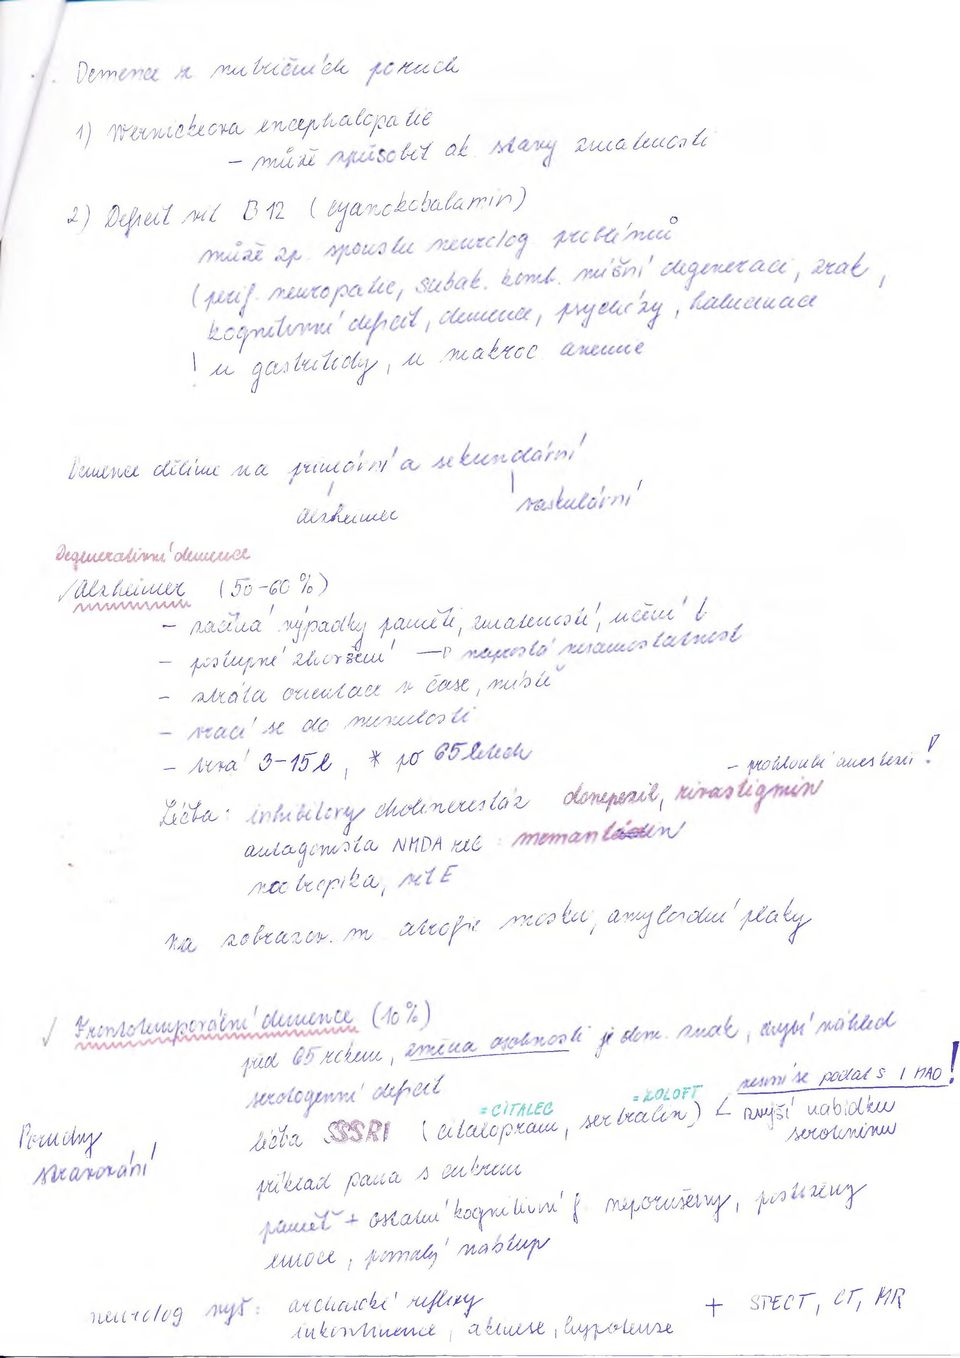 Demence z nutričních poruch
1) Wernickeova encephalopatie
– může způsobit ak. stavy zmatenosti
2) Deficit vit B12 (cyanokobalamin)
může zp. spoustu neurolog. problémů
(perif. neuropatie, subak. komb. míšní degeneraci, zrak,
kognitivní deficit, demence, psychózy, halucinace
! u gastritidy, u makroc anemie
Demence dělíme na primární a sekundární
alzheimer vaskulární
Degenerativní demence
√ Alzheimer (50-60 %)
– začíná výpadky paměti, zmateností, učení
– postupné zhoršení → naprostá nesamostatnost
– ztráta orientace v čase, místě
– vrací se do minulosti
– trvá 3-15 l, * po 65 letech
– prohloubí anestezii!
Léčba: inhibitory cholinesteráz donepezil, rivastigmin
antagonista NMDA rec: memantin
nootropika, vit E
na zobrazov. m. atrofie mozku, amyloidní plaky
√ Frontotemporální demence (10%)
před 65 rokem, změna osobnosti je dom. znak, chybí náhled
serotogenní deficit
= CITALEC = ZOLOFT nesmí se podat s IMAO!
léčba SSRI (citalopram, sertralin) zvýší nabídku
serotoninu
Poruchy
stravování
příklad pána s cukrem
paměť + ostatní kognitivní f. neporušeny, postiženy
emoce, pomalý nástup
neurolog vyš: archaické reflexy + SPECT, CT, MR
inkontinence, akinese, hypotenze